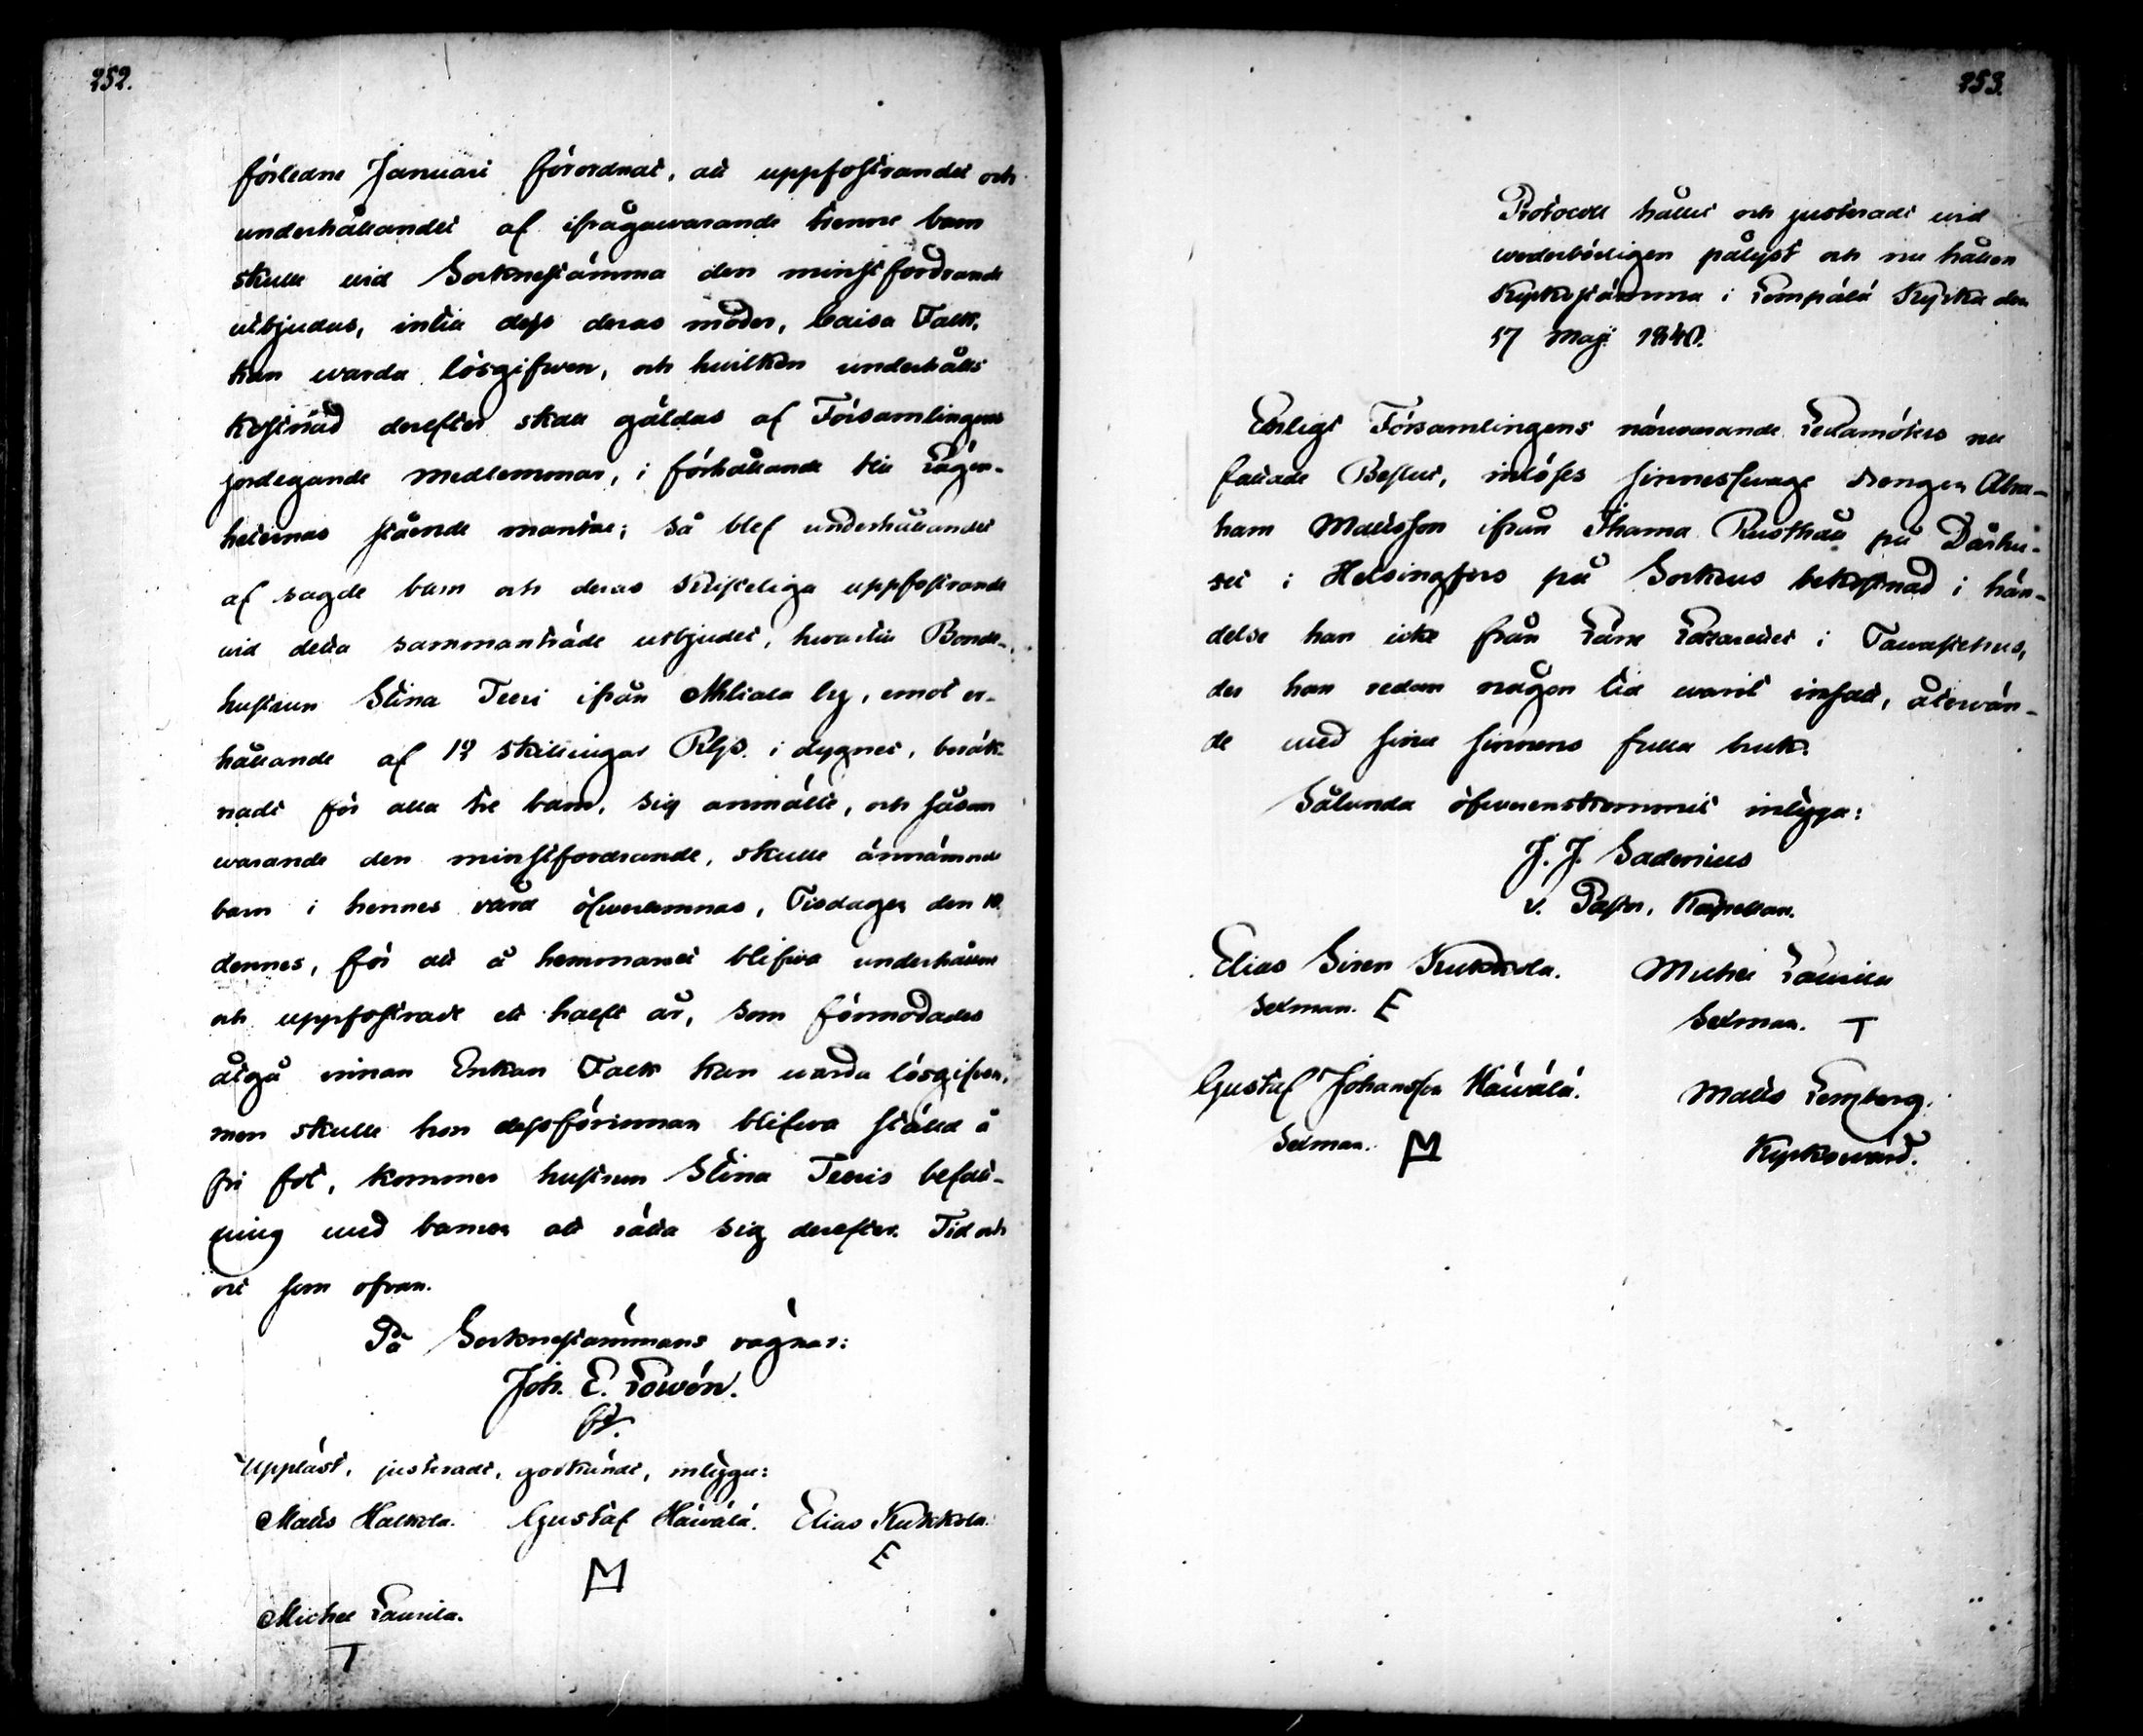 252.
förledne Januari förordnat, att uppfostrandet och
underhållandet af ifrågawarande trenne barn
skulle wid Socknestämma den minstfordrande
utbjudas, intill dess deras moder, Caisa Falk,
kan warda lösgifwen, och hwilken underhålls
kostnad derefter skall gäldas af Församlingens
jordegande medlemmar, i förhållande till Lägen-
heternas stående mantal; så blef underhållandet
af sagde barn och deras Christeliga uppfostrande
wid detta sammanträde utbjudet, hwartill Bonde-
hustrun Stina Teeri ifrån Ahtiala by, emot er-
hållande af 12 skillingar Rgs. i dygnet, beräk-
nadt för alla tre barn, sig anmälte, och såsom
warande den minstfordrande, skulle ännämnde
barn i hennes vård öfwerlemnas, Tisdagen den 10
dennes, för att å hemmanet blifwa underhållne
och uppfostrade ett halft år, som förmodades
åtgå innan Enkan Falk kan warda lösgifwen,
men skulle hon dessförinnan blifwa ställd å
fri fot, kommer hustrun Stina Teeris befatt-
ning med barnen att rätta sig derefter. Tid och
ort som ofvan.
På Socknestämmans vägnar:
Joh. E. Lowén.
Uppläst, justeradt, godkändt, intyga:
Matts Halkola. Gustaf Häiwälä. Elias Kukkola.
M E
Michel Laurila.
T
253.
Protocoll hållet och justeradt wid
wederbörligen pålyst och nu hållen
Kyrkostämma i Lempälä Kyrka den
17 Maji 1840.
Enligt Församlingens närwarande Ledamöters nu
fattade Beslut, inlöses sinnessvage drengen Abra-
ham Mattsson ifrån Ihama Rusthåll på Dårhu-
set i Helsingfors på Sockens bekostnad i hän-
delse han icke från Läne Lazarettet i Tawastehus,
der han redan någon tid warit insatt, återwän-
de med sina sinnens fulla bruk.
Sålunda öfwerenskommit intyga:
J. J. Sadenius
v. Pastor, Kapellan.
Elias Siren Kukkola. Michel Laurila
Sexman. E Sexman. T
Gustaf Johansson Häiwälä. Matts Lemberg.
Sexman. M Kyrkowärd.